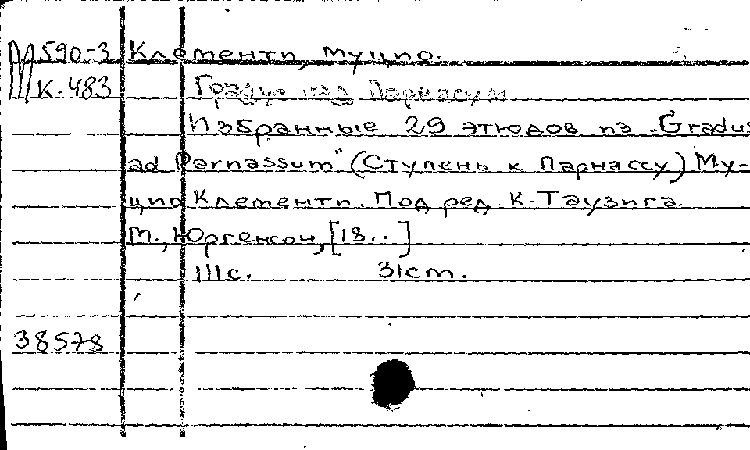 Ш590-3 Клементи, Муцио.
К-483 Градус ад Парнасум
Избранные 29 этюдов из "Gradus
ad Parnassum" (Ступень к Парнассу) Му-
цио Клементи. Под ред. К. Таузига
М., Юргенсон, [18..]
111с. 31cm.
38578